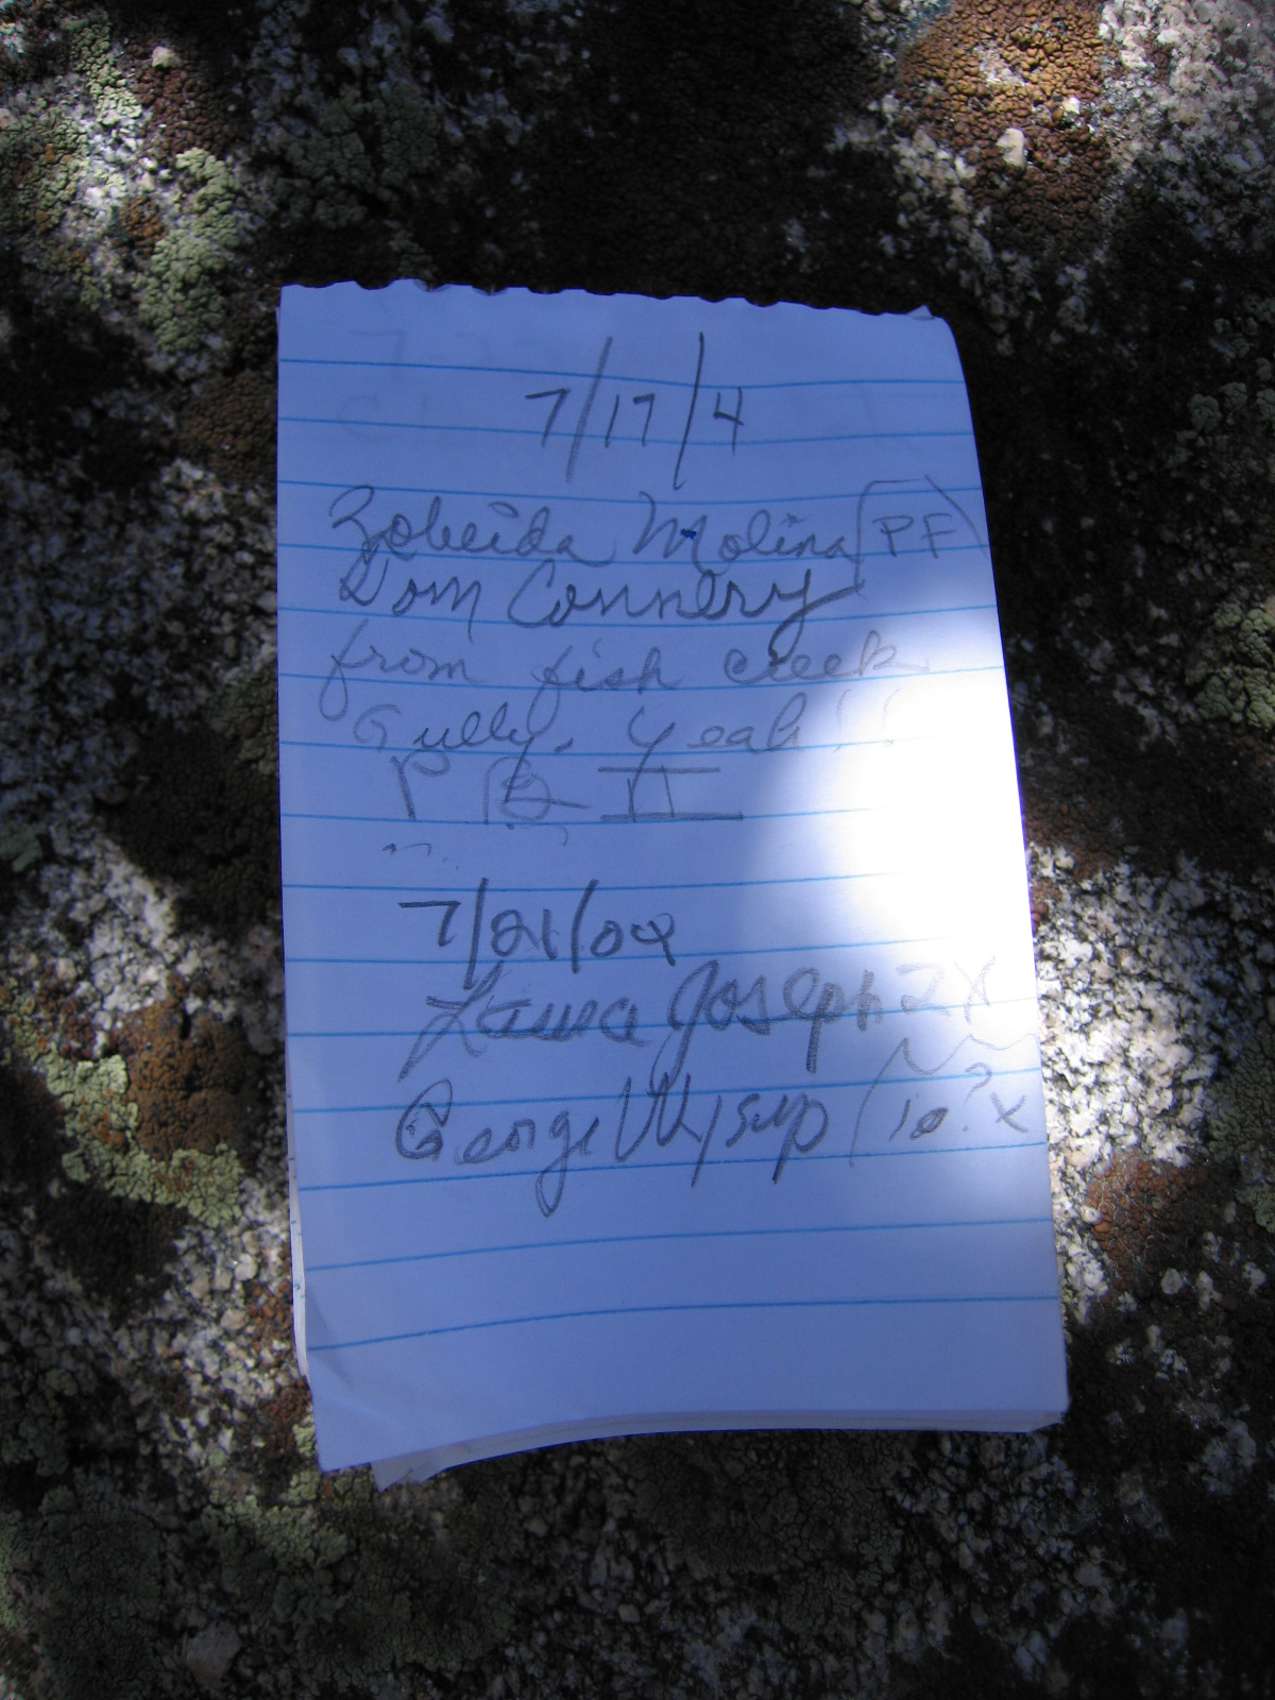 7/17/4
Zobeida Molina (PF)
Dom Connery
from fish creek
Gully. Yeah!!
II
7/21/04
Laura Joseph 2X
George Wysup (10?x